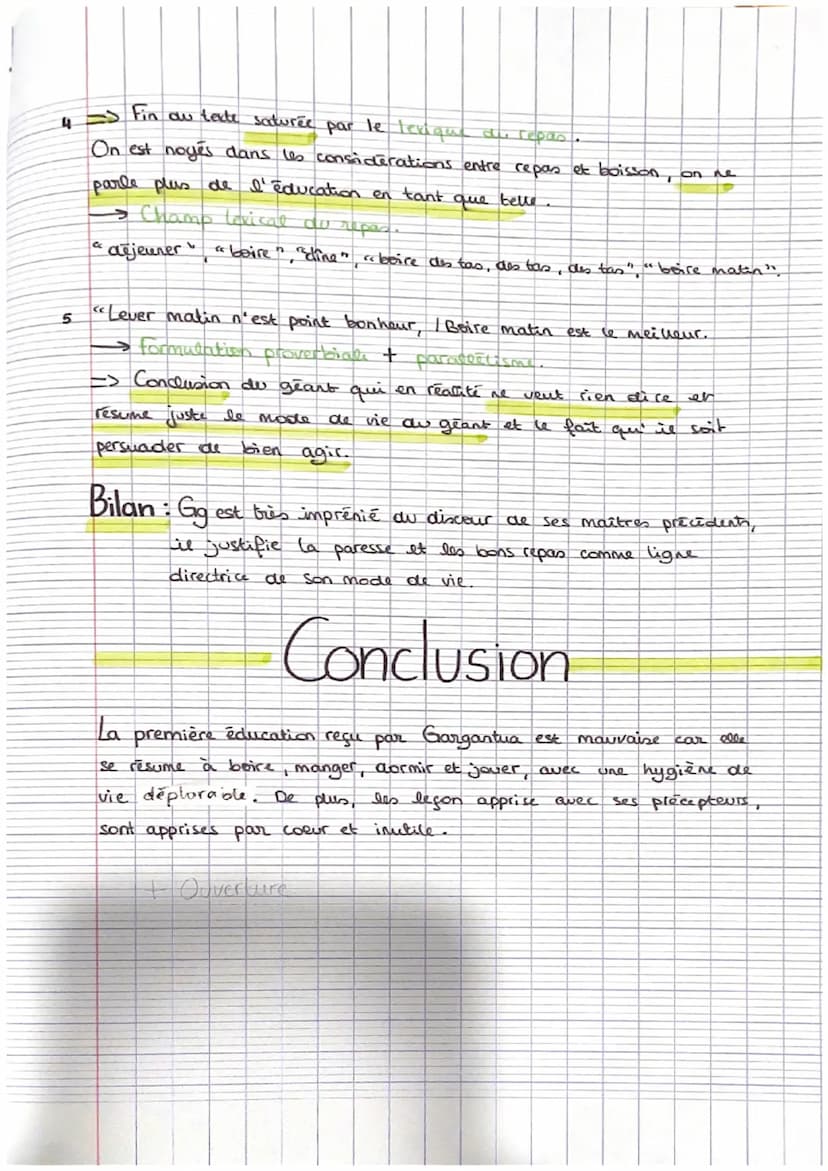 4 => Fin du texte saturée par le lexique du repas.
On est noyés dans les considérations entre repas et boisson, on ne
parle plus de l'éducation en tant que telle.
→ Champ lexical du repas.
"déjeuner", "boire", "dîne", "boire des tas, des tas, des tas", "boire matin".
5 "Lever matin n'est point bonheur, / Boire matin est le meilleur.
→ formulation proverbiale + parallélisme.
=> Conclusion du géant qui en réalité ne veut rien dire et
résume juste le mode de vie du géant et le fait qu'il soit
persuader de bien agir.
Bilan : Gg est très imprénié du disceur de ses maîtres précédents,
il justifie la paresse et les bons repas comme ligne
directrice de son mode de vie.
Conclusion
La première éducation reçu par Gargantua est mauvaise car elle
se résume à boire, manger, dormir et jouer, avec une hygiène de
vie déplorable. De plus, les leçon apprise avec ses précepteurs,
sont apprises par coeur et inutile.
+ Ouverture